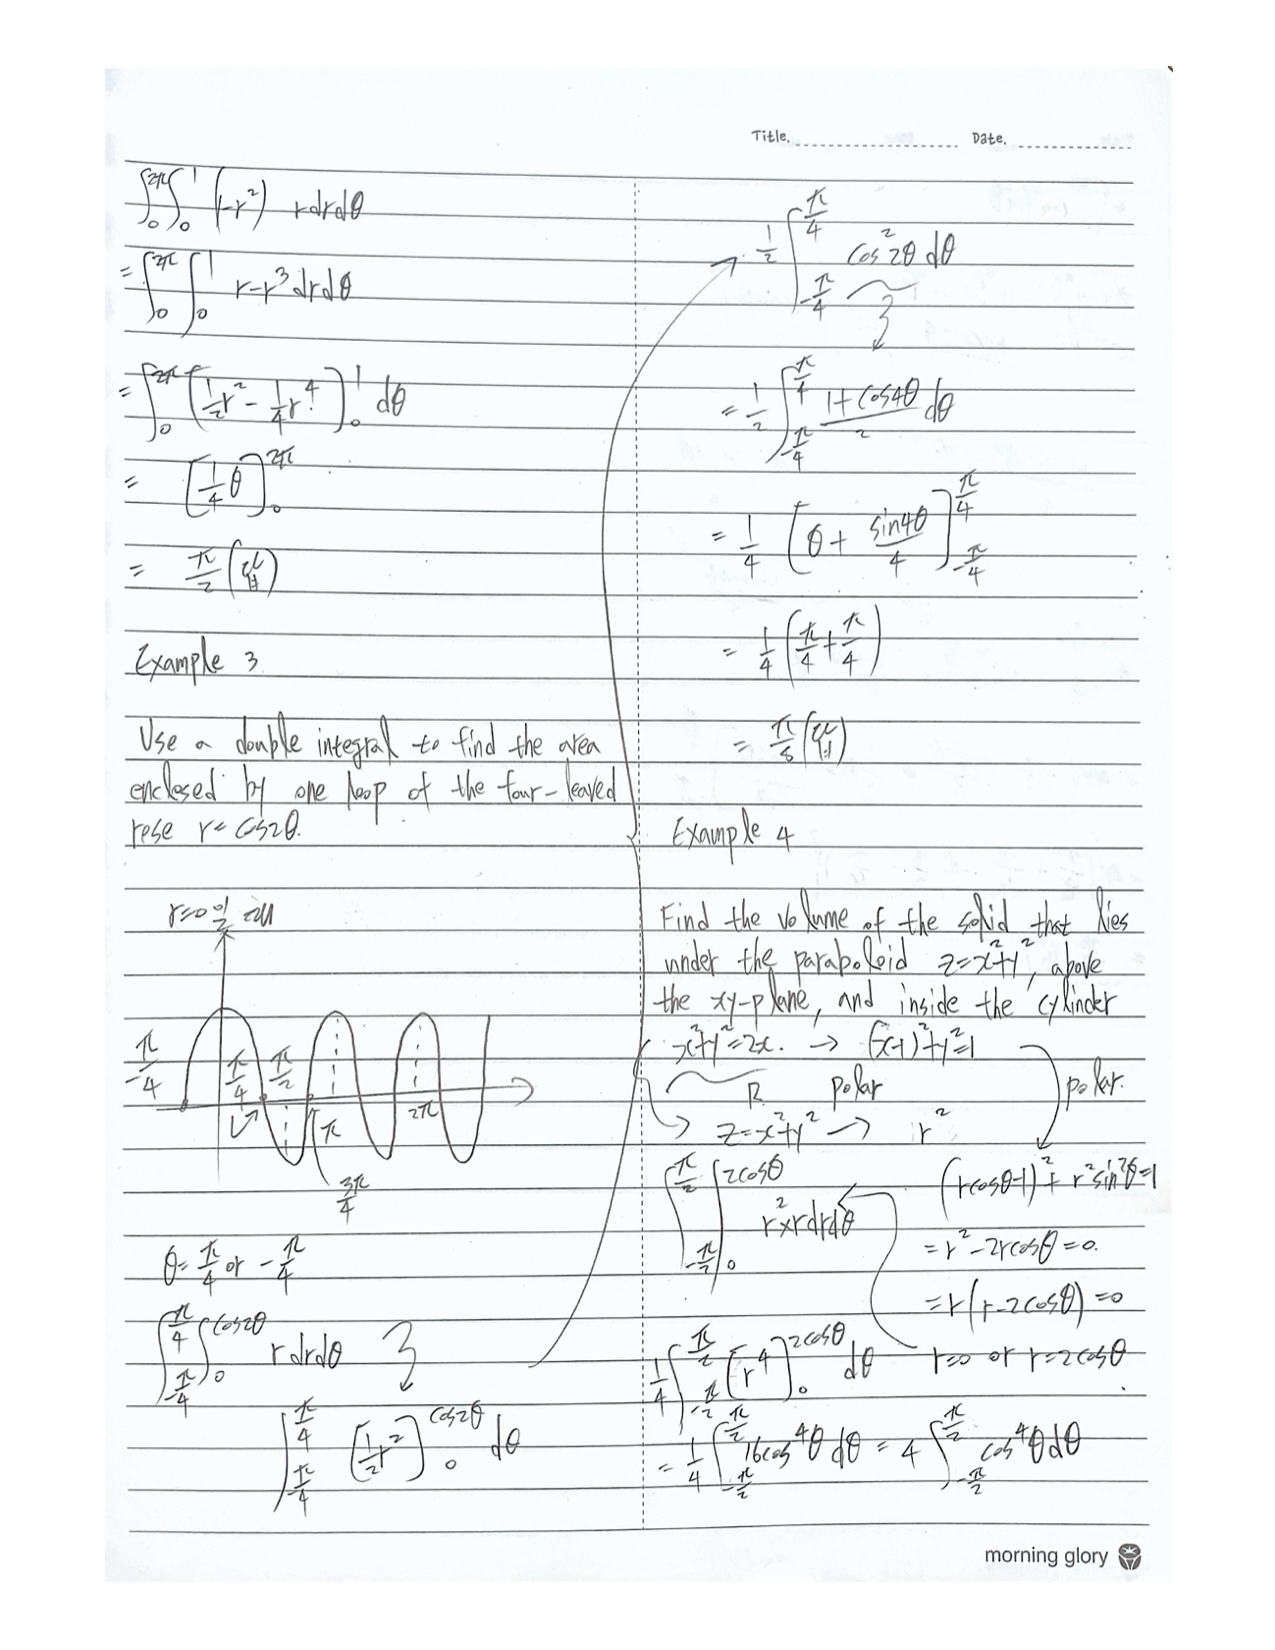 Title. Date.
∫₀^2π ∫₀^1 (1-r²) rdrdθ
= ∫₀^2π ∫₀^1 r-r³drdθ
= ∫₀^2π [1/2 r² - 1/4 r⁴]₀^1 dθ
= [1/4 θ]₀^2π
= π/2
Example 3
Use a double integral to find the area
enclosed by one loop of the four-leaved
rose r=cos2θ.
r=0일 때
-π/4 π/4 π/2 π 2π
3π/4
θ=π/4 or -π/4
∫_{-π/4}^{π/4} ∫₀^{cos2θ} rdrdθ
∫_{-π/4}^{π/4} [1/2 r²]₀^{cos2θ} dθ
1/2 ∫_{-π/4}^{π/4} cos²2θdθ
= 1/2 ∫_{-π/4}^{π/4} (1+cos4θ)/2 dθ
= 1/4 [θ + sin4θ/4]_{-π/4}^{π/4}
= 1/4 (π/4 + π/4)
= π/8
Example 4
Find the volume of the solid that lies
under the paraboloid z=x²+y², above
the xy-plane, and inside the cylinder
x²+y²=2x. → (x-1)²+y²=1
R polar polar.
z=x²+y² → r²
∫_{-π/2}^{π/2} ∫₀^{2cosθ} r²×rdrdθ
(rcosθ-1)²+r²sin²θ=1
=r²-2rcosθ=0.
=r(r-2cosθ)=0
r=0 or r=2cosθ
1/4 ∫_{-π/2}^{π/2} [r⁴]₀^{2cosθ} dθ
= 1/4 ∫_{-π/2}^{π/2} 16cos⁴θdθ = 4 ∫_{-π/2}^{π/2} cos⁴θdθ
morning glory